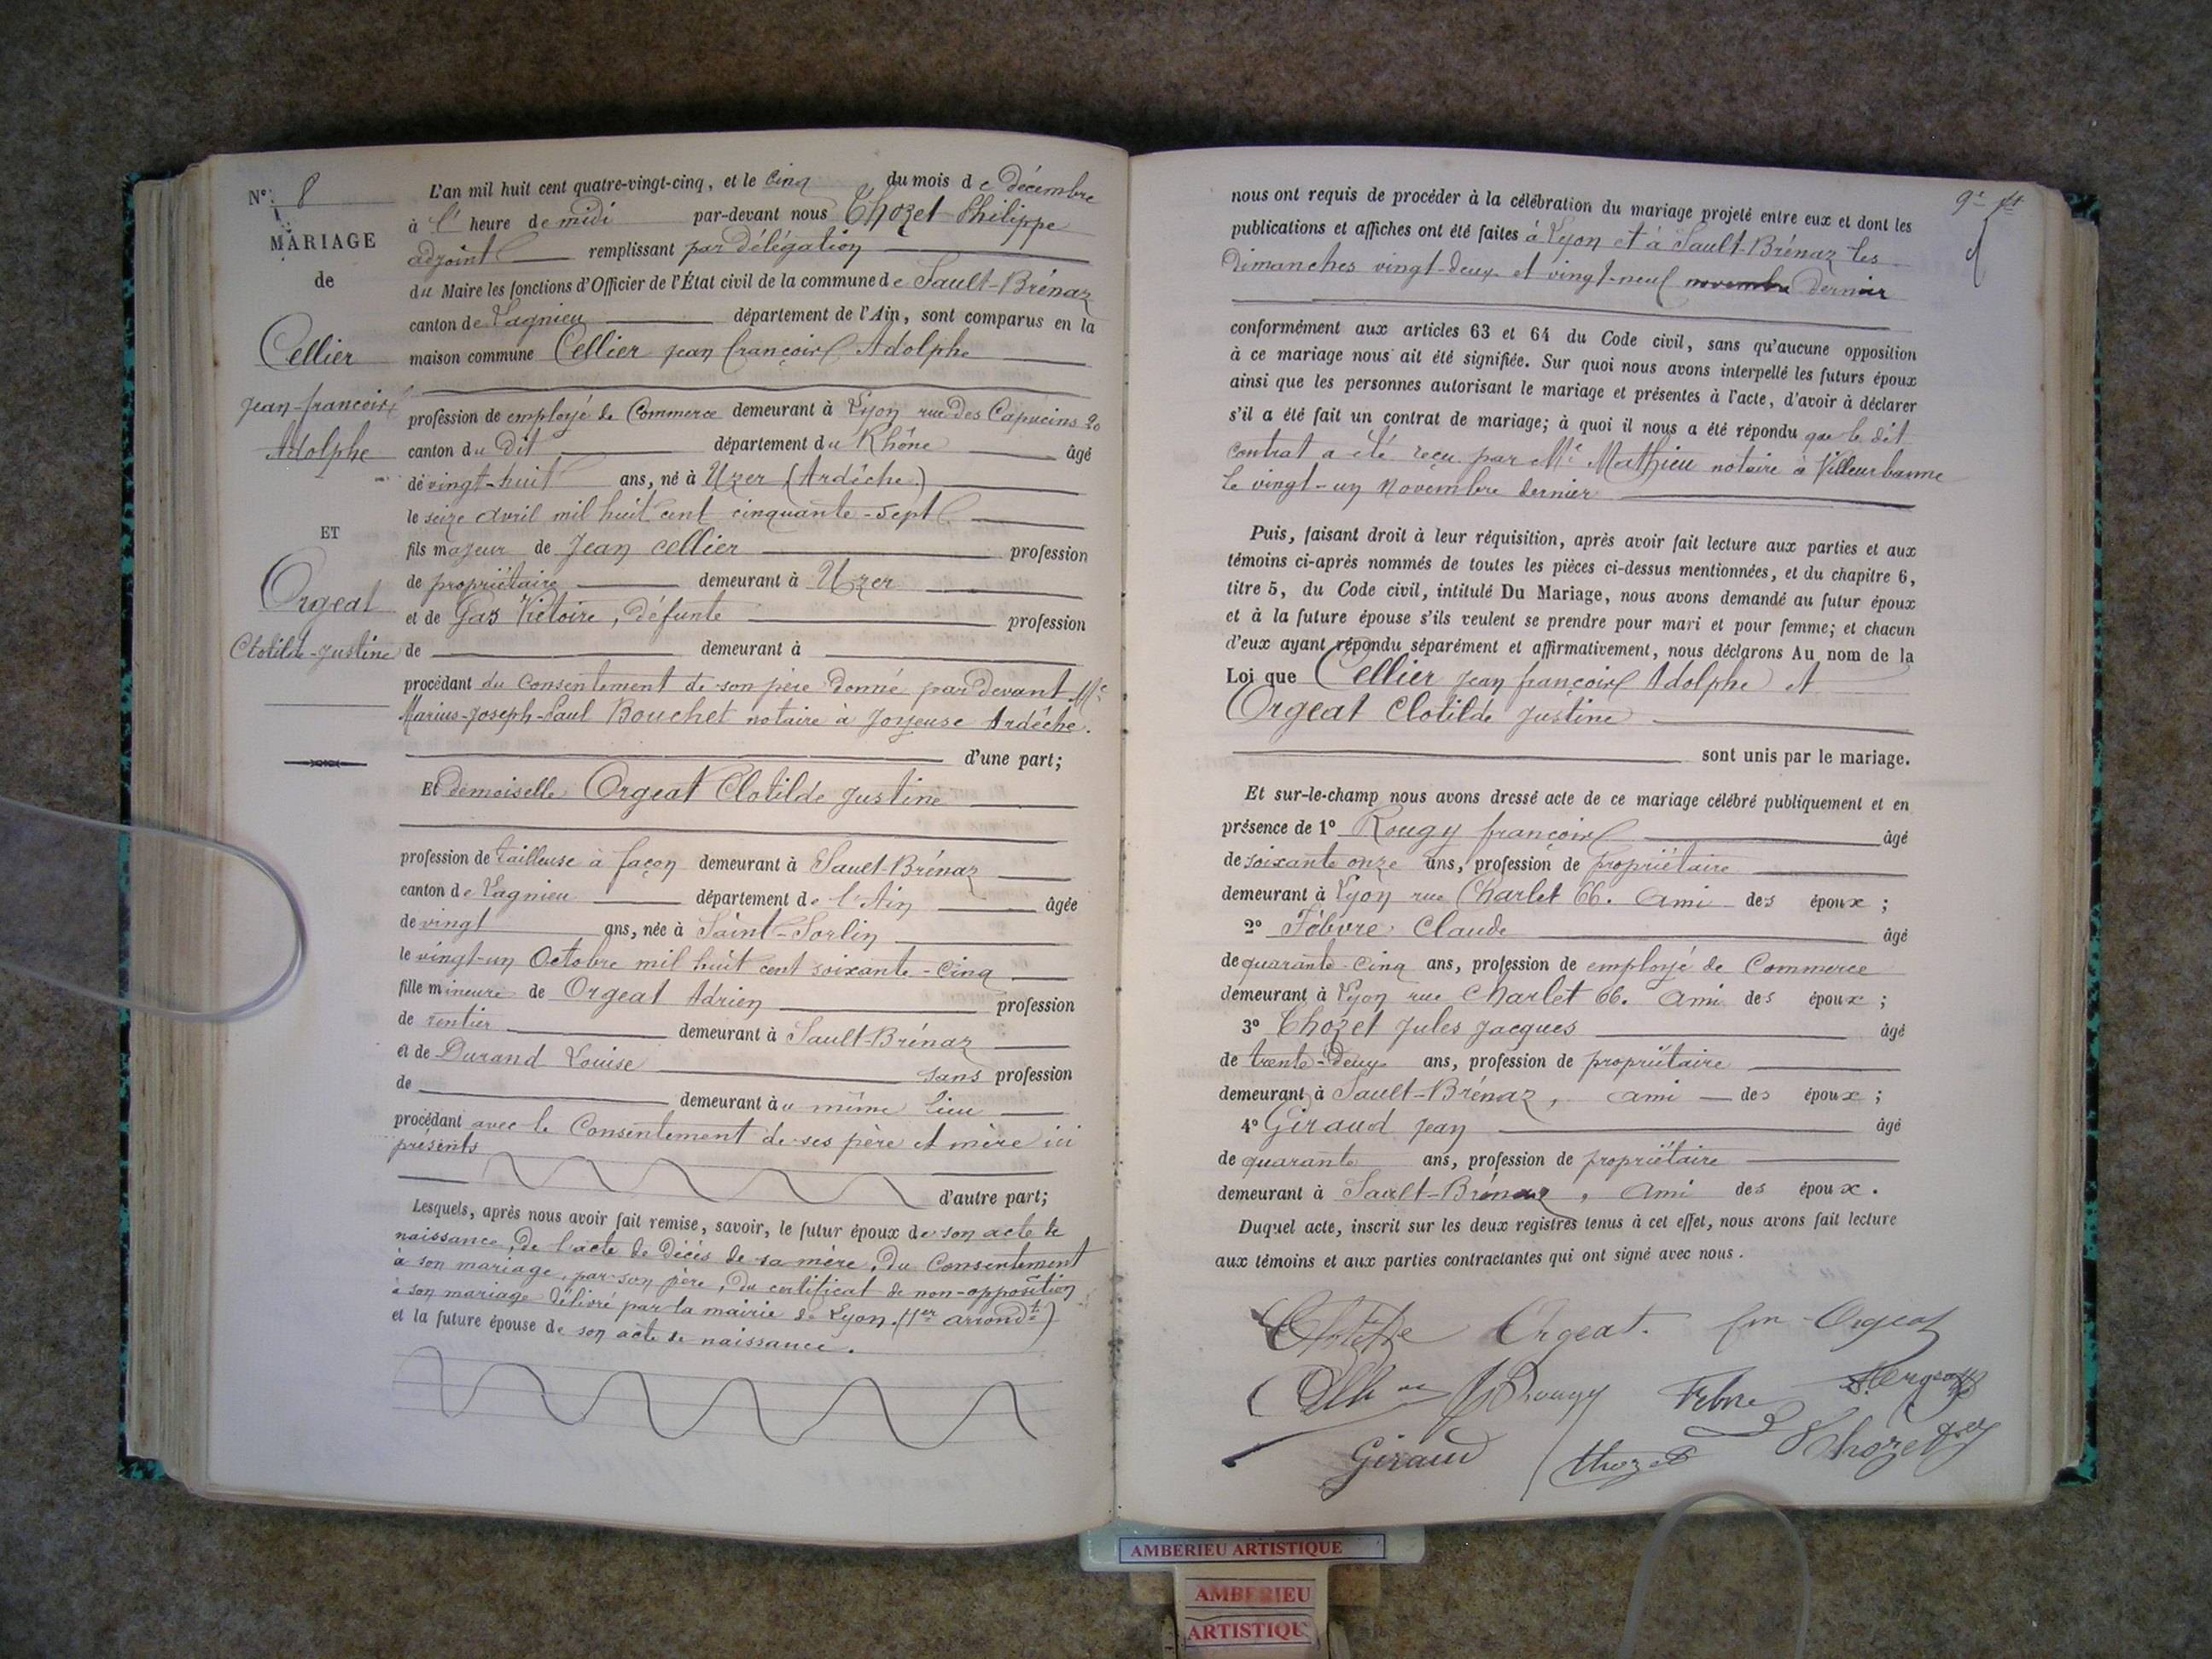 N° 8
MARIAGE
de
Cellier
Jean-françois
Adolphe
ET
Orgeat
Clotilde-Justine
L'an mil huit cent quatre-vingt-cinq, et le cinq du mois de décembre
à l' heure de midi par-devant nous Thozet Philippe
adjoint remplissant par délégation
du Maire les fonctions d'Officier de l'État civil de la commune de Sault-Brénaz
canton de Lagnieu département de l'Ain, sont comparus en la
maison commune Cellier Jean françois Adolphe
profession de employé de Commerce demeurant à Lyon rue des Capucins 20
canton du dit département du Rhône âgé
de vingt-huit ans, né à Uzer (Ardèche)
le seize avril mil huit cent cinquante-sept
fils majeur de Jean Cellier profession
de propriétaire demeurant à Uzer
et de Gas Victoire, défunte profession
de demeurant à
procédant du Consentement de son père donné par devant Me
Marius-Joseph-Paul Bouchet notaire à Joyeuse Ardèche.
d'une part;
Et demoiselle Orgeat Clotilde Justine
profession de tailleuse à façon demeurant à Sault-Brénaz
canton de Lagnieu département de l'Ain âgée
de vingt ans, née à Saint-Sorlin
le vingt-un Octobre mil huit cent soixante-cinq
fille mineure de Orgeat Adrien profession
de rentier demeurant à Sault-Brénaz
et de Durand Louise sans profession
de demeurant au même lieu
procédant avec le Consentement de ses père et mère ici
présents
d'autre part;
Lesquels, après nous avoir fait remise, savoir, le futur époux de son acte de
naissance, de l'acte de décès de sa mère, du Consentement
à son mariage, par son père, du certificat de non-opposition
à son mariage délivré par la mairie de Lyon. (1er arrondt)
et la future épouse de son acte de naissance.
nous ont requis de procéder à la célébration du mariage projeté entre eux et dont les
publications et affiches ont été faites à Lyon et à Sault-Brénaz les
dimanches vingt-deux et vingt-neuf novembre dernier
conformément aux articles 63 et 64 du Code civil, sans qu'aucune opposition
à ce mariage nous ait été signifiée. Sur quoi nous avons interpellé les futurs époux
ainsi que les personnes autorisant le mariage et présentes à l'acte, d'avoir à déclarer
s'il a été fait un contrat de mariage; à quoi il nous a été répondu que le dit
contrat a été reçu par Me Mathieu notaire à Villeurbanne
le vingt-un Novembre dernier
Puis, faisant droit à leur réquisition, après avoir fait lecture aux parties et aux
témoins ci-après nommés de toutes les pièces ci-dessus mentionnées, et du chapitre 6,
titre 5, du Code civil, intitulé Du Mariage, nous avons demandé au futur époux
et à la future épouse s'ils veulent se prendre pour mari et pour femme; et chacun
d'eux ayant répondu séparément et affirmativement, nous déclarons Au nom de la
Loi que Cellier Jean françois Adolphe et
Orgeat Clotilde Justine
sont unis par le mariage.
Et sur-le-champ nous avons dressé acte de ce mariage célébré publiquement et en
présence de 1° Rougy françois âgé
de soixante onze ans, profession de propriétaire
demeurant à Lyon rue Charlet 66. Ami des époux;
2° Fèbvre Claude âgé
de quarante-cinq ans, profession de employé de Commerce
demeurant à Lyon rue Charlet 66. Ami des époux;
3° Thozet Jules Jacques âgé
de trente-deux ans, profession de propriétaire
demeurant à Sault-Brénaz, ami des époux;
4° Giraud Jean âgé
de quarante ans, profession de propriétaire
demeurant à Sault-Brénaz, Ami des époux.
Duquel acte, inscrit sur les deux registres tenus à cet effet, nous avons fait lecture
aux témoins et aux parties contractantes qui ont signé avec nous.
Clotilde Orgeat. Orgeat
Febvre
Giraud Thozet Thozet
AMBERIEU ARTISTIQUE
AMBERIEU
ARTISTIQU